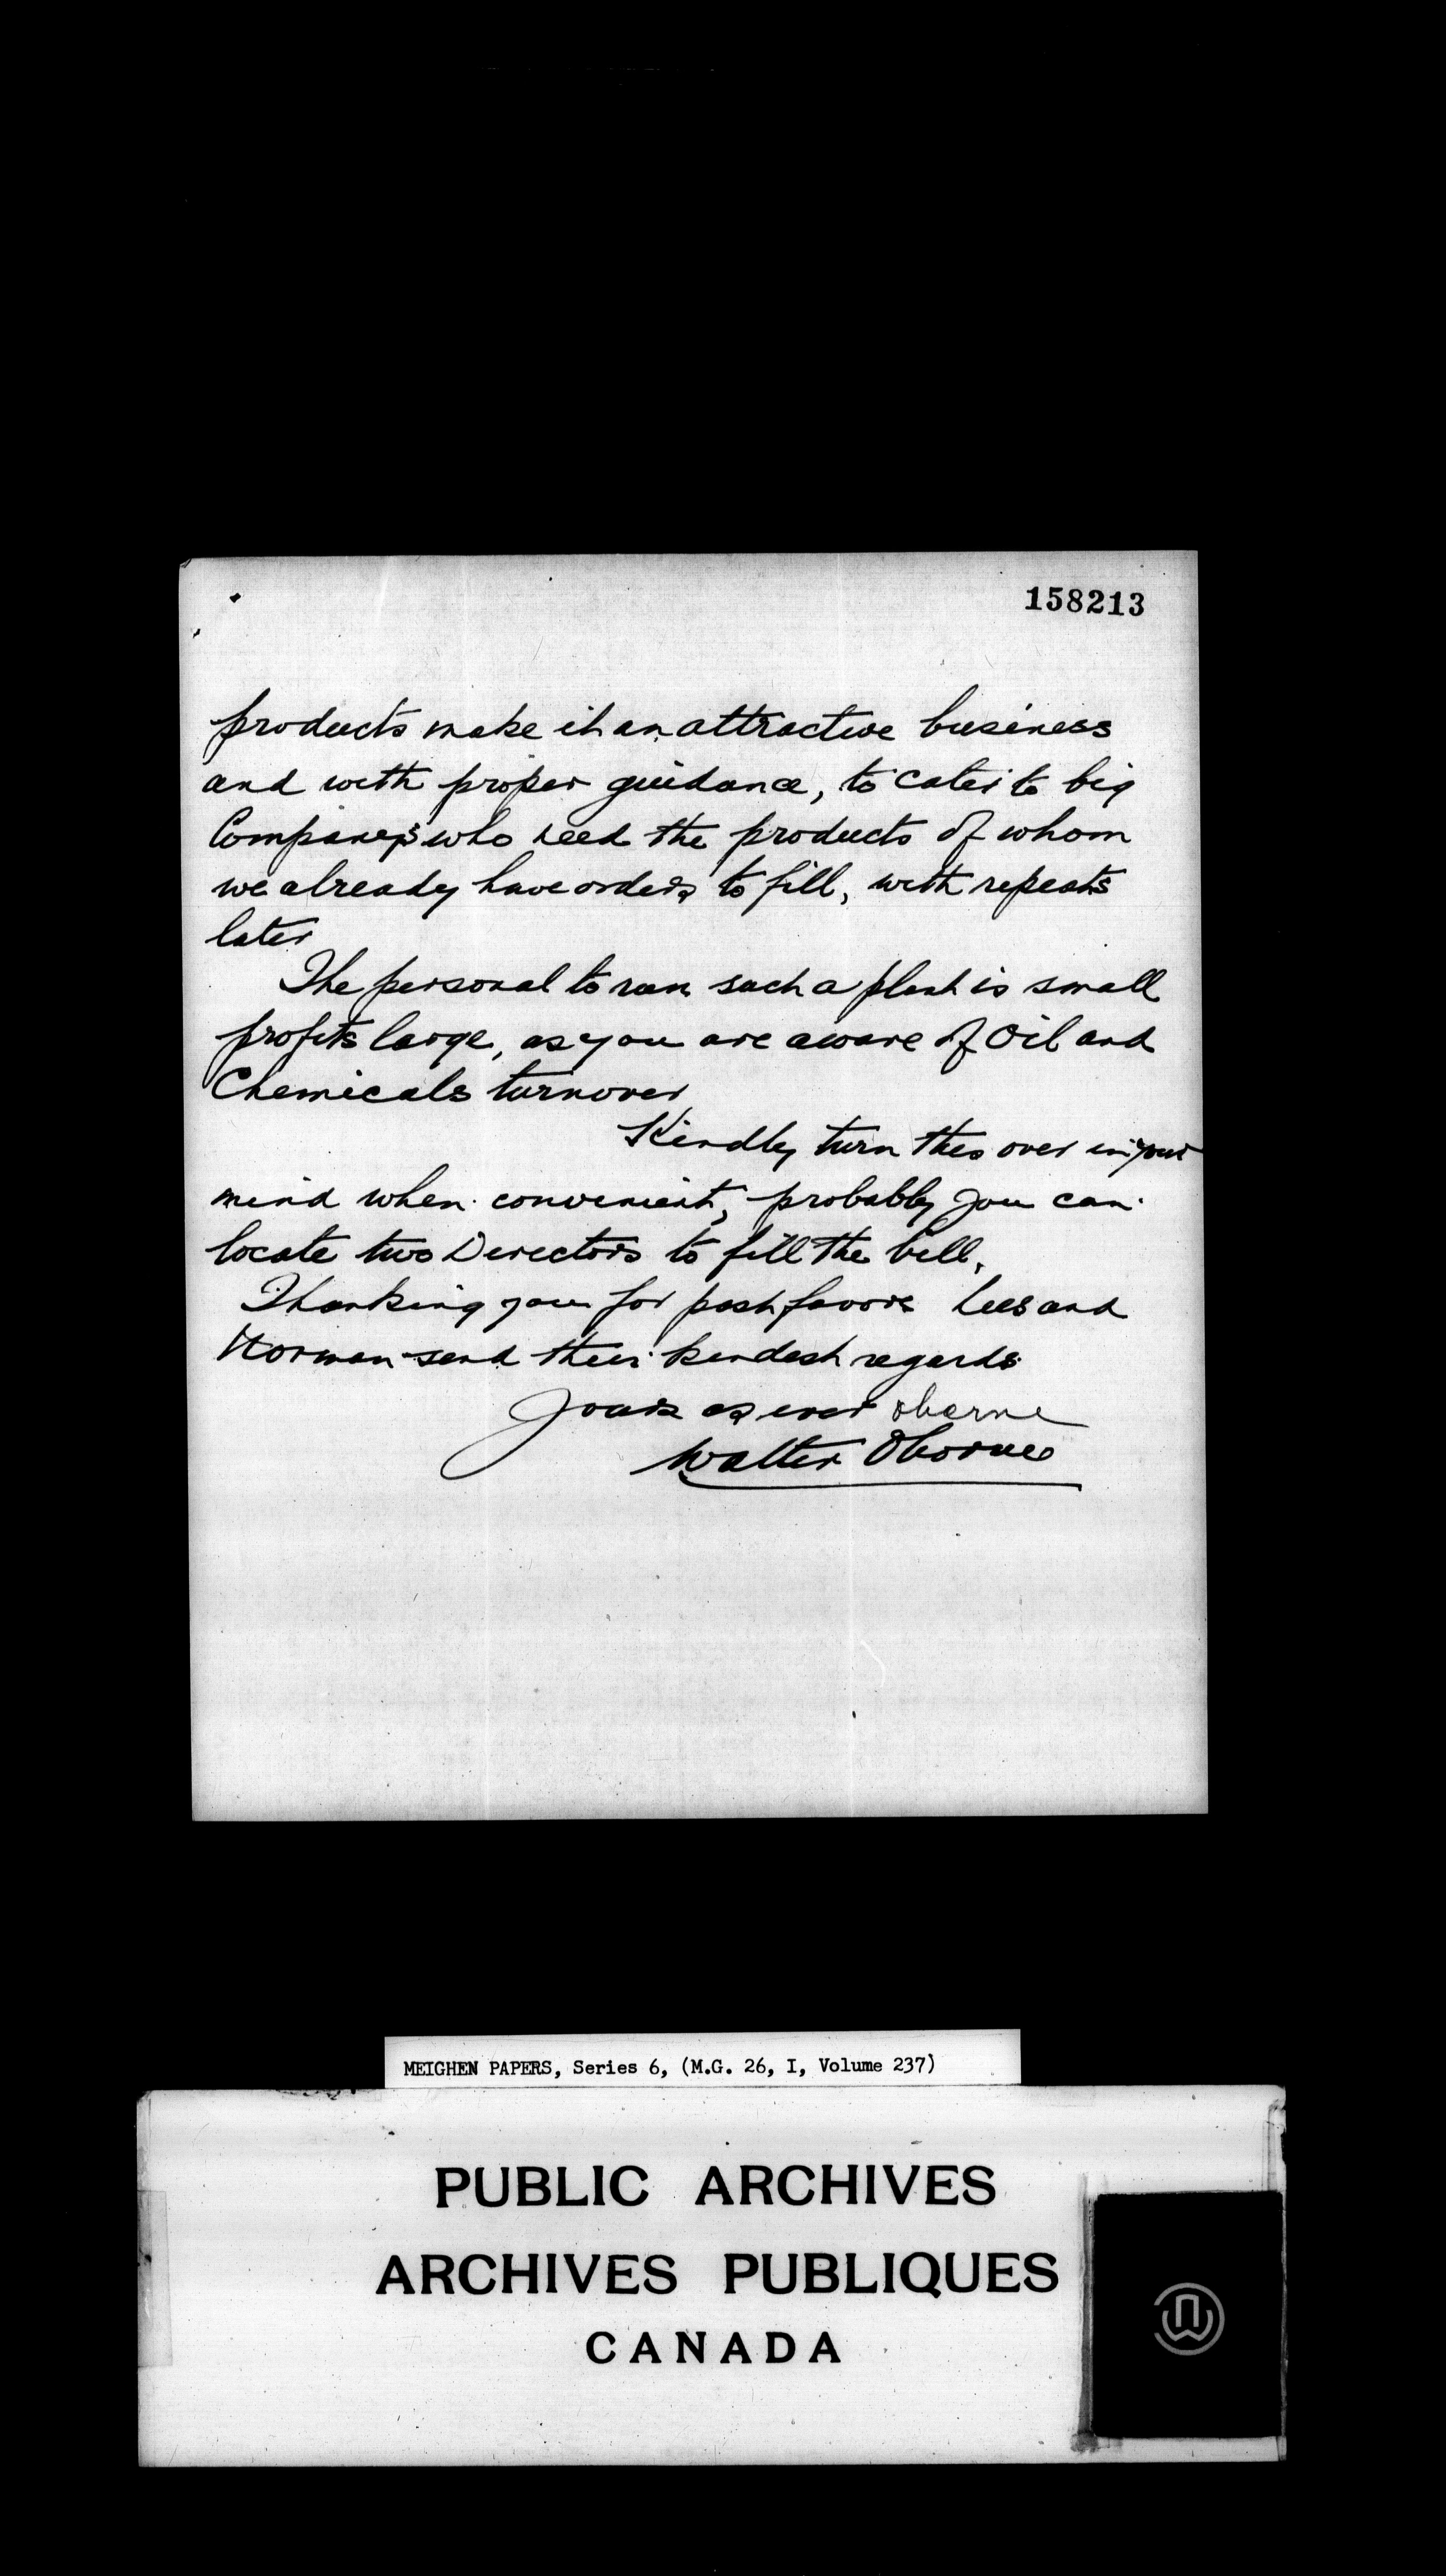 158213
products make it an attractive business
and with proper guidance, to cater to big
Companys who need the products of whom
we already have orders to fill, with repeats
later
The personal to run such a plant is small
profits large, as you are aware of Oil and
Chemicals turnover
Kindly turn this over in your
mind when convenient, probably you can
locate two Directors to fill the bill,
Thanking you for past favors and
Norman send their kindest regards
Yours as ever oborne
Walter Oborne
MEIGHEN PAPERS, Series 6, (M.G. 26, I, Volume 237)
PUBLIC ARCHIVES
ARCHIVES PUBLIQUES
CANADA